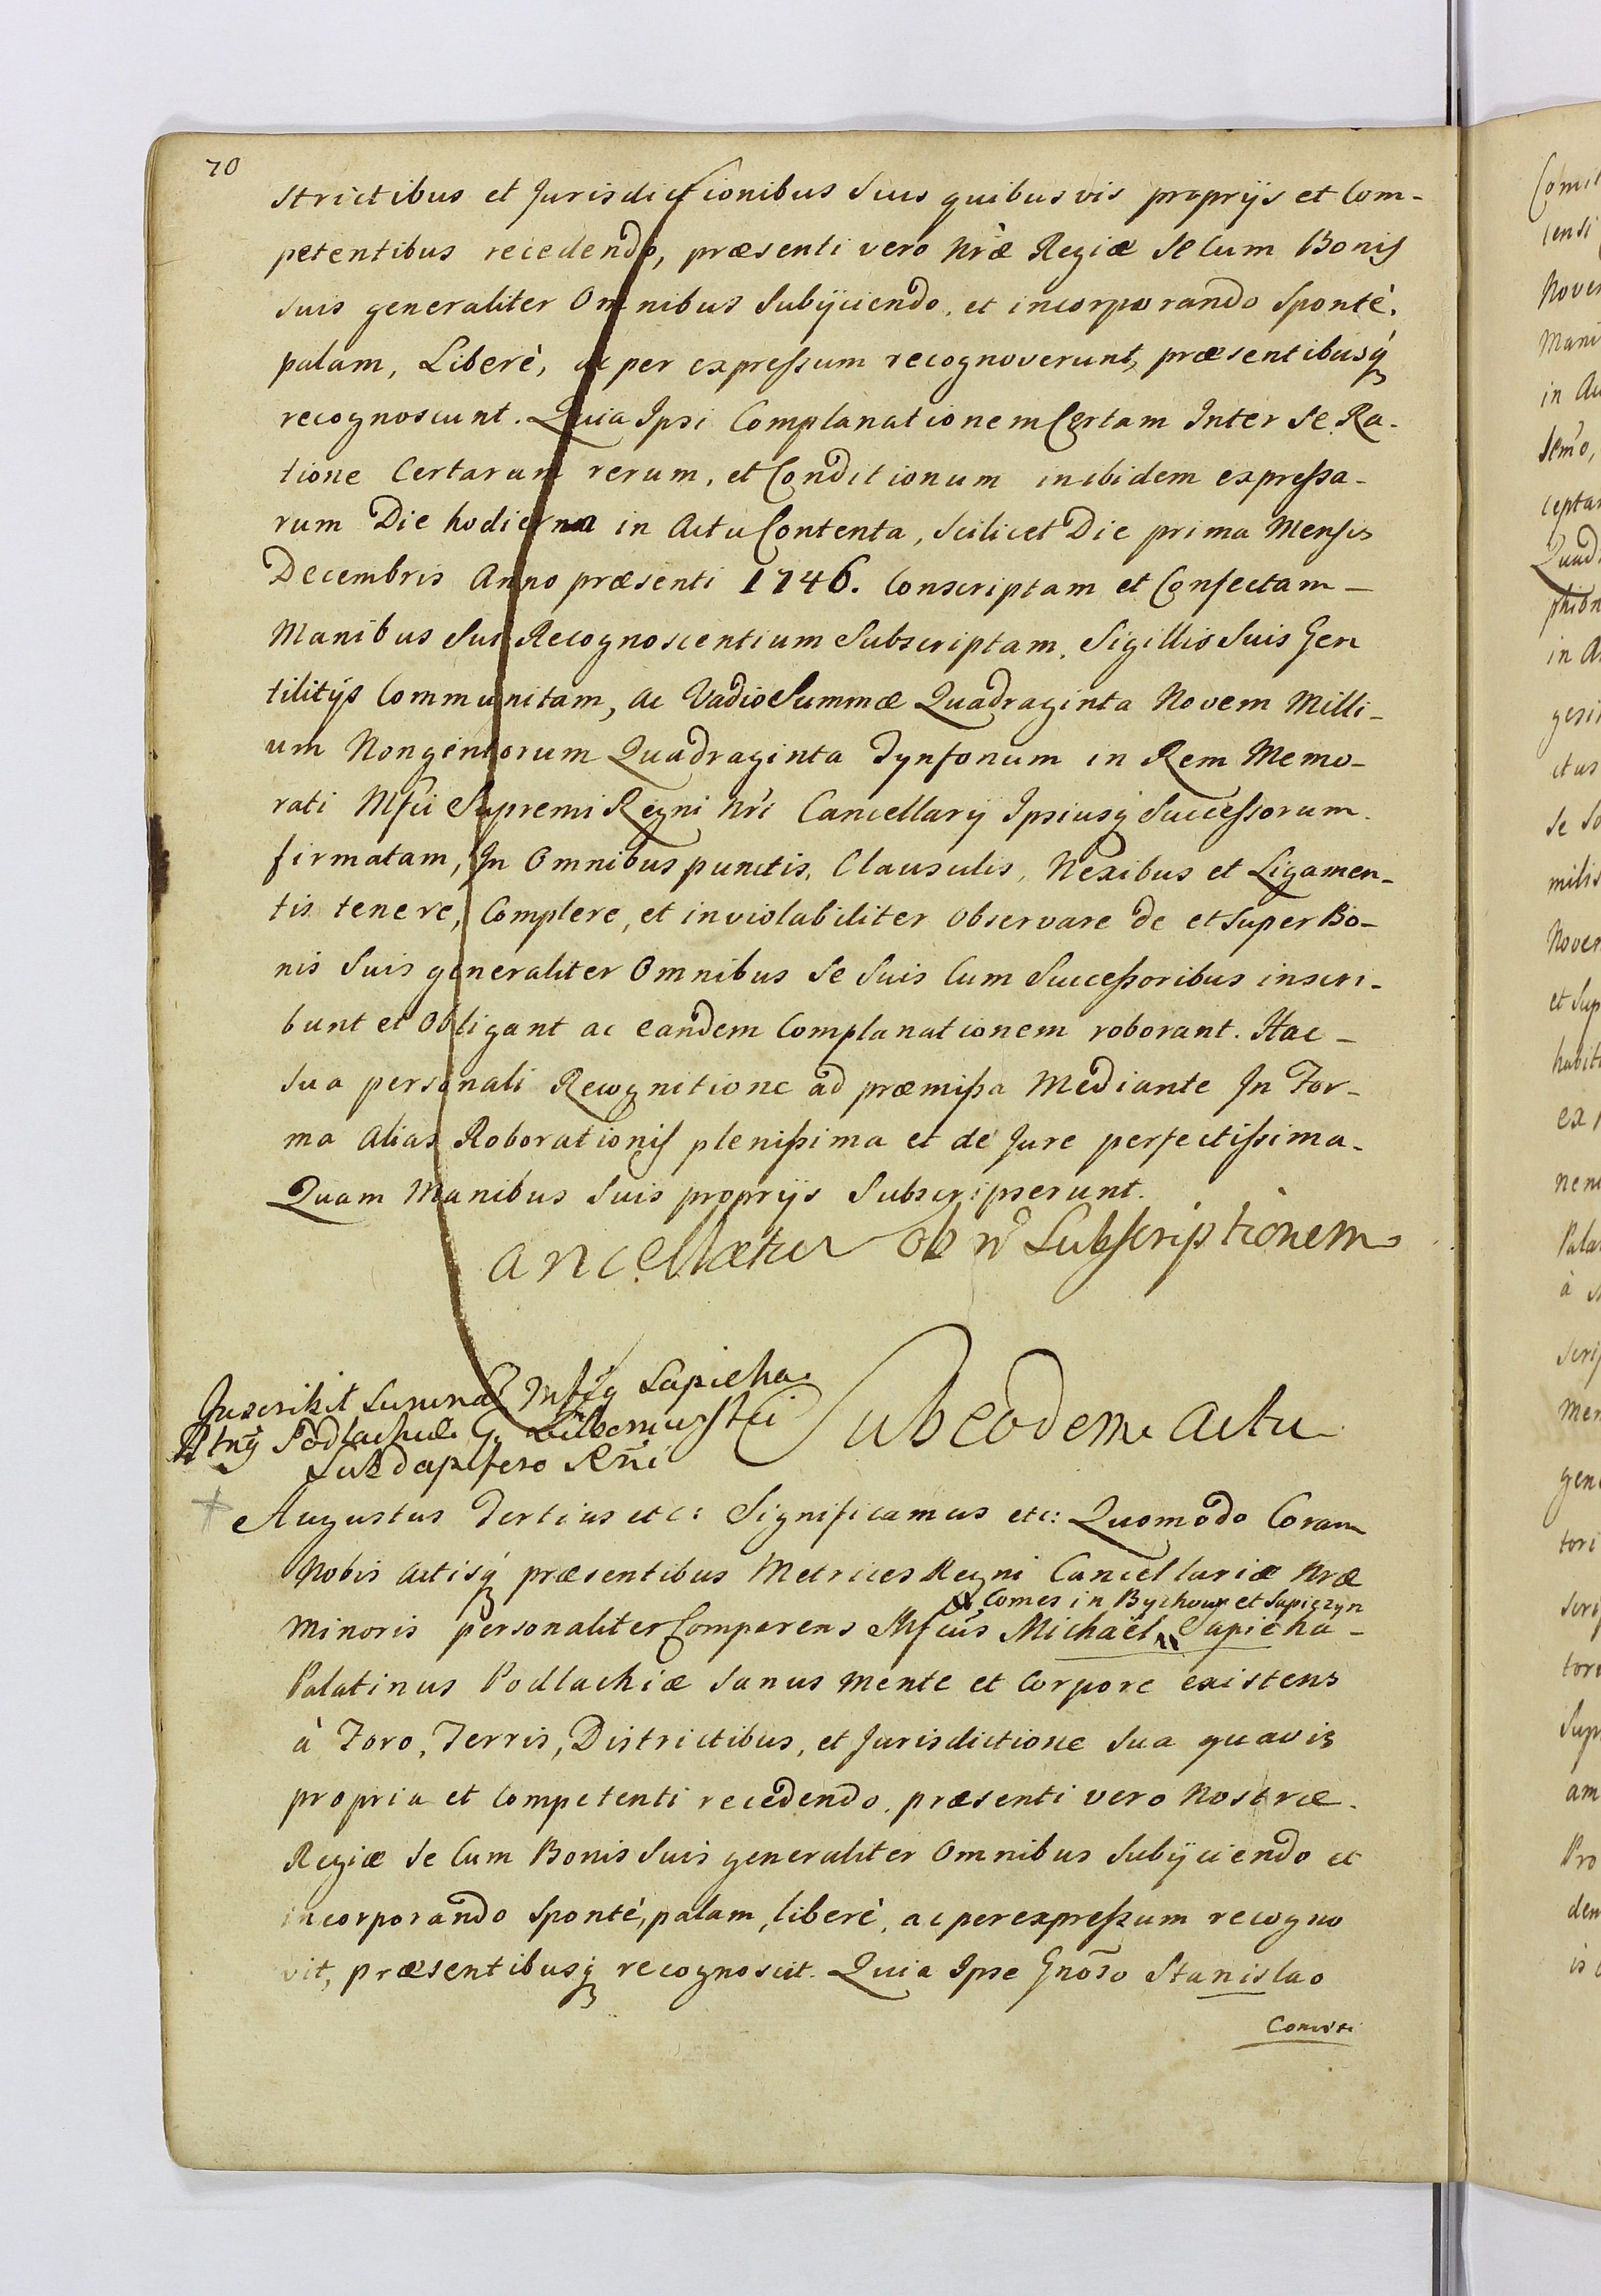 70
strictibus et Jurisdictionibus suis quibusvis proprijs et Com-
petentibus recedendo, præsenti vero Nræ Regiæ se Cum Bonis
suis generaliter Omnibus Subijciendo, et incorporando Sponte,
palam, Liberè, ac per expressum recognoverunt, præsentibusq́
recognoscunt. Quia Ipsi Complanationem Certam Inter se Ra-
tione Certarum rerum, et Conditionum inibidem expressa-
rum Die hodierna in Actu Contenta, Scilicet Die prima Mensis
Decembris Anno præsenti 1746. Conscriptam et Confectam
Manibus Sui Recognoscentium Subscriptam, Sigillis Suis Gen
tilitijs Communitam, ac Vadio Summæ Quadraginta Novem Milli-
um Nongentorum Quadraginta Tynfonum in Rem Memo-
rati Mfci Supremi Regni Nri Cancellarij Ipsiusq́ Successorum
firmatam, In Omnibus punctis, Clausulis, Nexibus et Ligamen-
tis tenere, Complere, et inviolabiliter observare de et super Bo-
nis Suis generaliter Omnibus se suis Cum Successoribus inscri-
bunt et Obligant ac eandem Complanationem roborant. Hac
sua personali Recognitione ad præmissa Mediante In For-
ma alias Roborationis plenissima et de Jure perfectissima
Quam Manibus Suis proprijs Subscripserunt.
ancellætur ob n Subscriptionem
Inscribit Summa Sapieha
Podlachiæ G.
Subdapifero
Sub eodem actu
Augustus Tertius etc: Significamus etc: Quomodo Coram
Nobis Actisq́ præsentibus Metrices Regni Cancellariæ Nræ
Comes in Bychow et Sapiezyn
Minoris personaliter Comparens Mfcus Michaël Sapieha
Palatinus Podlachiæ Sanus mente et Corpore existens
à Foro, Terris, Districtibus, et Jurisdictione sua quavis
propria et Competenti recedendo, præsenti vero Nostræ
Regiæ se Cum Bonis Suis generaliter Omnibus Subijciendo et
incorporando Sponté, palam, liberè, ac per expressum recogno
vit, præsentibusq́ recognoscit. Quia Ipse Gnõso Stanislao
Comiti